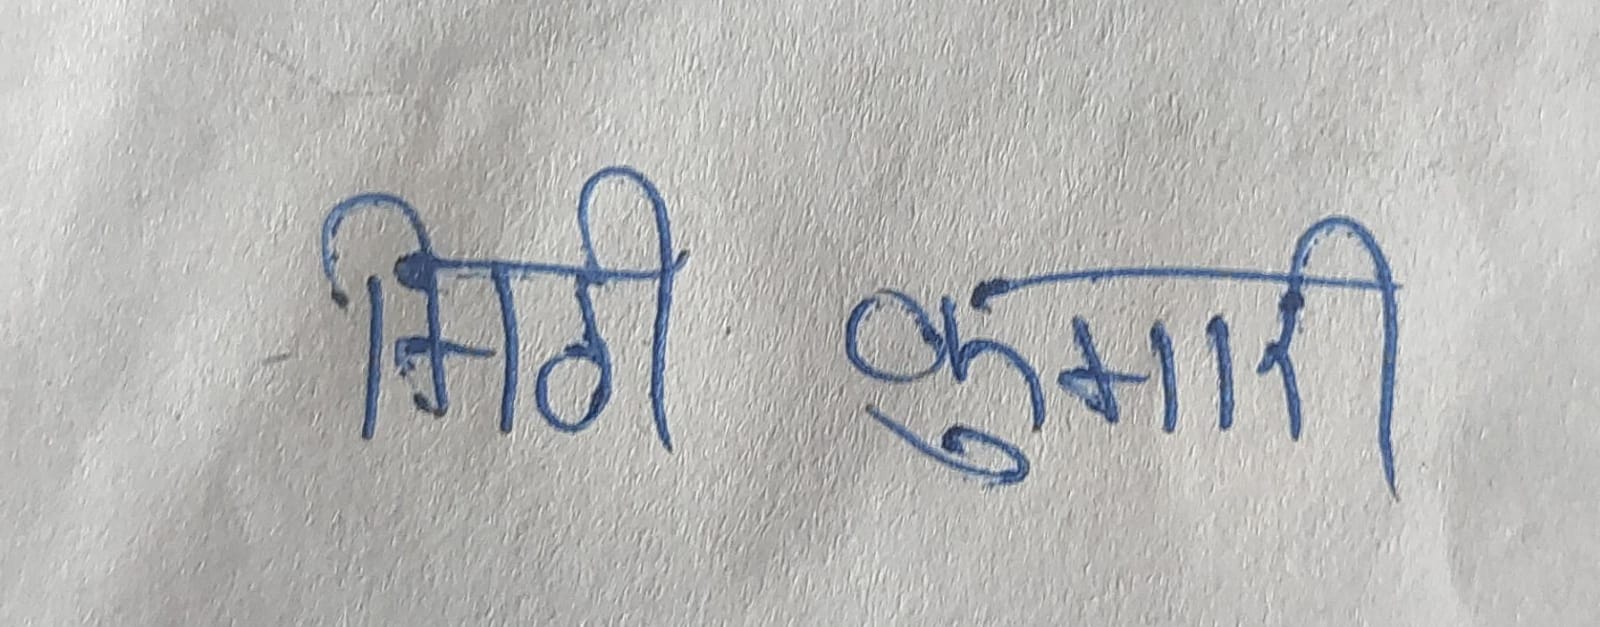 मिठी कुमारी